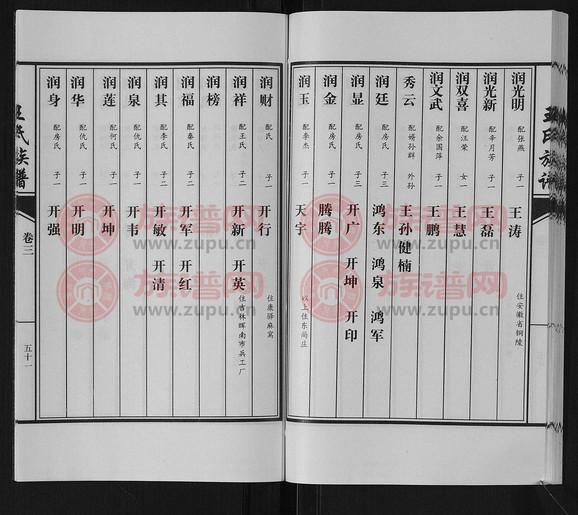 王氏族谱
润光明 配张燕 子一 王涛 住安徽省铜陵
润光新 配辛月芳 子一 王磊
润双喜 配汪荣 女一 王慧
润文武 配余国萍 子一 王鹏
秀云 配婿孙群 外孙 王孙健楠
润廷 配房氏 子三 鸿东 鸿泉 鸿军
润显 配房氏 子三 开广 开坤 开印
润金 配房氏 子一 腾腾
润玉 配李杰 子一 天宇 以上住东尚庄
润财 配氏 子一 开行 住康驿麻窝
润祥 配王氏 子二 开新 开英 住吉林晖南市兵工厂
润榜
润福 配秦氏 子二 开军 开红
润其 配李氏 子二 开敏 开清
润泉 配仇氏 子一 开韦
润莲 配何氏 子一 开坤
润华 配仇氏 子一 开明
润身 配房氏 子一 开强
王氏族谱
卷三
五十一
族谱网
www.zupu.cn
族谱网
www.zupu.cn
族谱网
www.zupu.cn
族谱网
www.zupu.cn